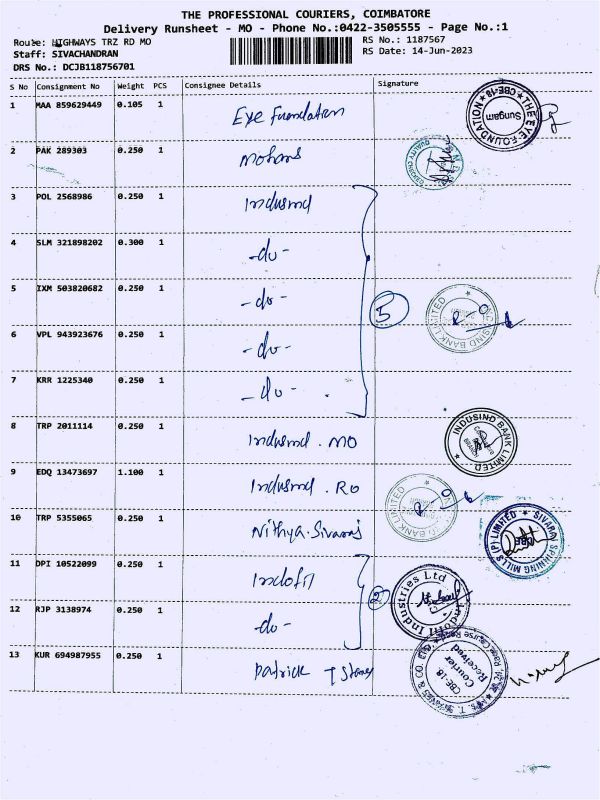 THE PROFESSIONAL COURIERS, COIMBATORE
Delivery Runsheet - MO - Phone No.:0422-3505555 - Page No.:1
Route: HIGHWAYS TRZ RD MO
RS No.: 1187567
Staff: SIVACHANDRAN
RS Date: 14-Jun-2023
DRS No.: DCJB118756701
S No Consignment No Weight PCS Consignee Details Signature
1 MAA 859629449 0.105 1 Eye Foundation
THE EYE FOUNDATION CBE-18 Sungam
2 PAK 289303 0.250 1 Mohans
3 POL 2568986 0.250 1 Indusind
4 SLM 321898202 0.300 1 -do-
5 IXM 503820682 0.250 1 -do-
5
INDUSIND BANK LIMITED
6 VPL 943923676 0.250 1 -do-
7 KRR 1225340 0.250 1 -do-
8 TRP 2011114 0.250 1 Indusind . MO
INDUSIND BANK LIMITED
9 EDQ 13473697 1.100 1 Indusind . RO
INDUSIND BANK LIMITED
10 TRP 5355065 0.250 1 Nithya. Sivaraj
SIVARAJ SPINNING MILLS (P) LIMITED CBE
11 DPI 10522099 0.250 1 Indofil
2
Indofil Industries Ltd
12 RJP 3138974 0.250 1 -do-
13 KUR 694987955 0.250 1 Patrick
Race Course Road
CBE-18
Courier
Received